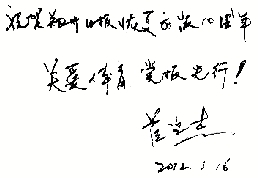 祝贺郑州日报恢复出版10周年
关爱体育 党报先行!
2012.1.16